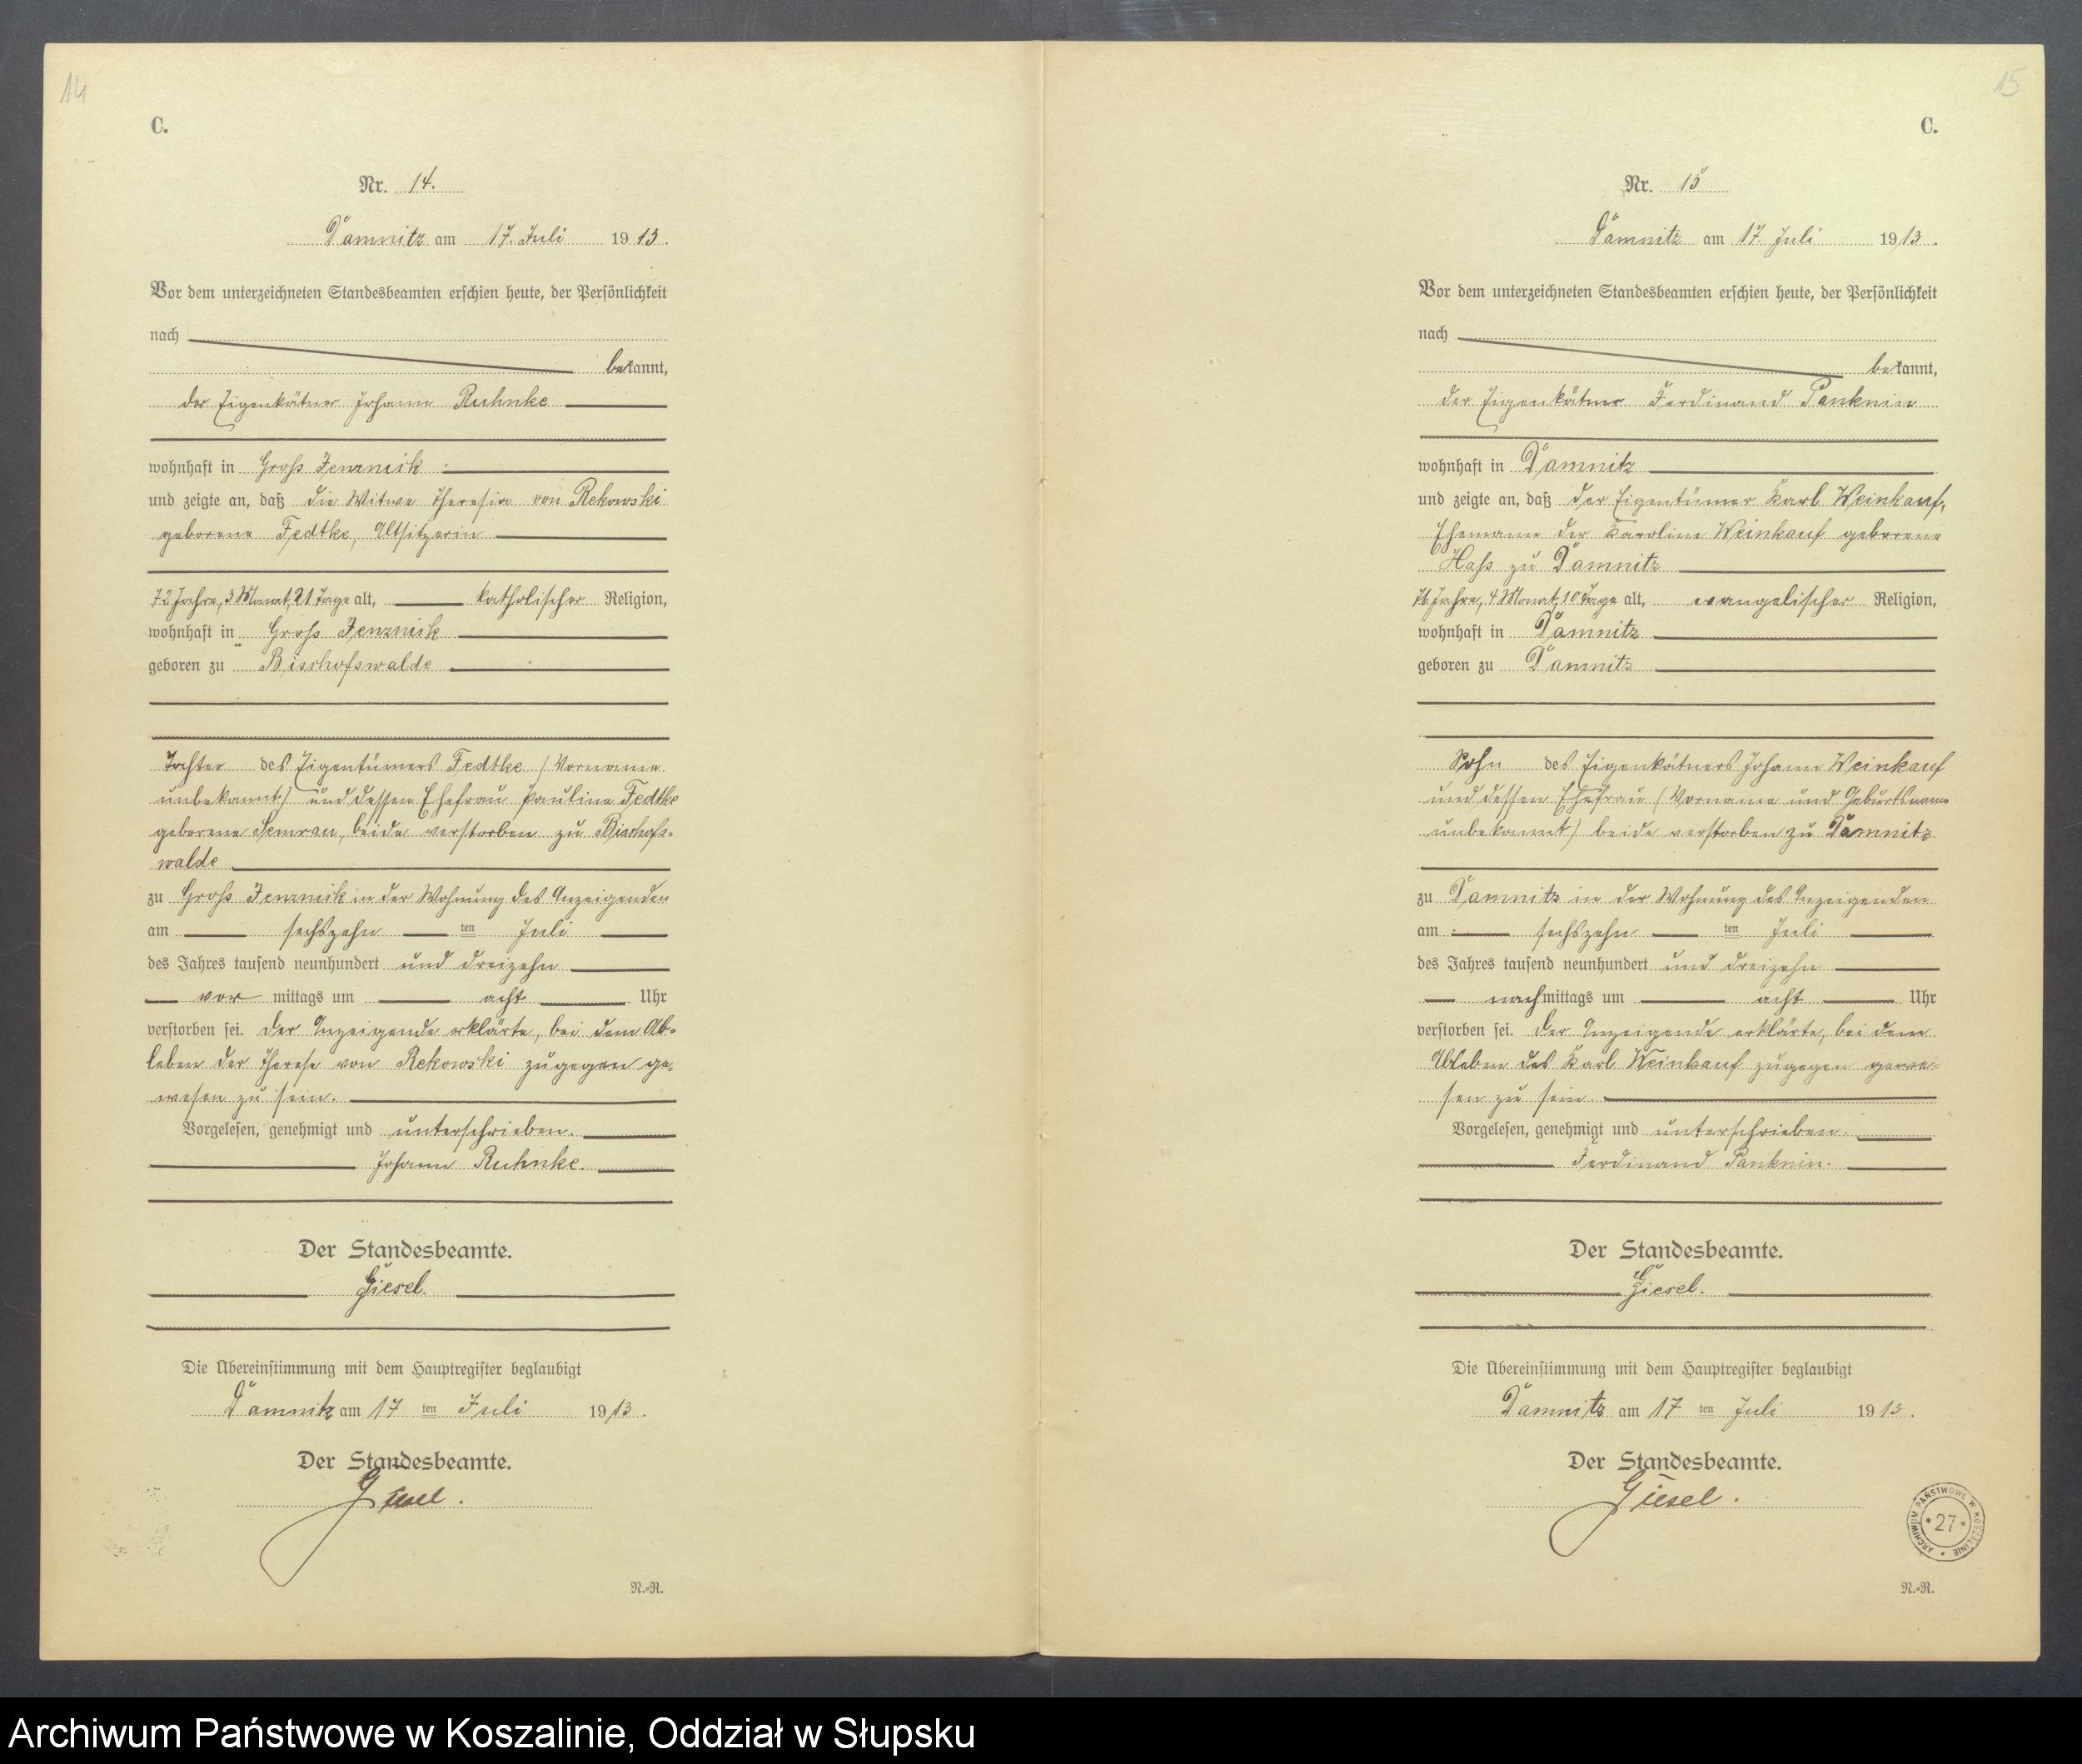 14
C.
Nr. 14.
Damnitz am 17. Juli 1913.
Vor dem unterzeichneten Standesbeamten erschien heute, der Persönlichkeit
nach
bekannt,
der Eigenkätner Johann Ruhnke
wohnhaft in Groß Jenznick
und zeigte an, daß die Witwe Theresia von Rekowski
geborene Fedtke, Altsitzerin
72 Jahre, 3 Monat, 21 Tage alt, katholischer Religion,
wohnhaft in Groß Jenznick
geboren zu Bischofswalde
Tochter des Eigentümers Fedtke (Vorname
unbekannt) und dessen Ehefrau Pauline Fedtke
geborene Semrau, beide verstorben zu Bischofs-
walde
zu Groß Jenznick in der Wohnung des Anzeigenden
am sechszehn ten Juli
des Jahres tausend neunhundert und dreizehn
vor mittags um acht Uhr
verstorben sei. Der Anzeigende erklärte, bei dem Ab-
leben der Therese von Rekowski zugegen ge-
wesen zu sein.
Vorgelesen, genehmigt und unterschrieben.
Johann Ruhnke.
Der Standesbeamte.
Giesel.
Die Übereinstimmung mit dem Hauptregister beglaubigt
Damnitz am 17 ten Juli 1913.
Der Standesbeamte.
Giesel.
N.-R.
15
C.
Nr. 15
Damnitz am 17. Juli 1913.
Vor dem unterzeichneten Standesbeamten erschien heute, der Persönlichkeit
nach
bekannt,
der Eigenkätner Ferdinand Panknin
wohnhaft in Damnitz
und zeigte an, daß der Eigentümer Karl Weinkauf,
Ehemann der Karoline Weinkauf geborene
Haß zu Damnitz
76 Jahre, 4 Monat, 10 Tage alt, evangelischer Religion,
wohnhaft in Damnitz
geboren zu Damnitz
Sohn des Eigenkätners Johann Weinkauf
und dessen Ehefrau (Vorname und Geburtsname
unbekannt) beide verstorben zu Damnitz
zu Damnitz in der Wohnung des Anzeigenden
am sechszehn ten Juli
des Jahres tausend neunhundert und dreizehn
nachmittags um acht Uhr
verstorben sei. Der Anzeigende erklärte, bei dem
Ableben des Karl Weinkauf zugegen gewe-
sen zu sein.
Vorgelesen, genehmigt und unterschrieben.
Ferdinand Panknin.
Der Standesbeamte.
Giesel.
Die Übereinstimmung mit dem Hauptregister beglaubigt
Damnitz am 17 ten Juli 1913.
Der Standesbeamte.
Giesel.
ARCHIWUM PAŃSTWOWE W KOSZALINIE
* 27 *
N.-R.
Archiwum Państwowe w Koszalinie, Oddział w Słupsku